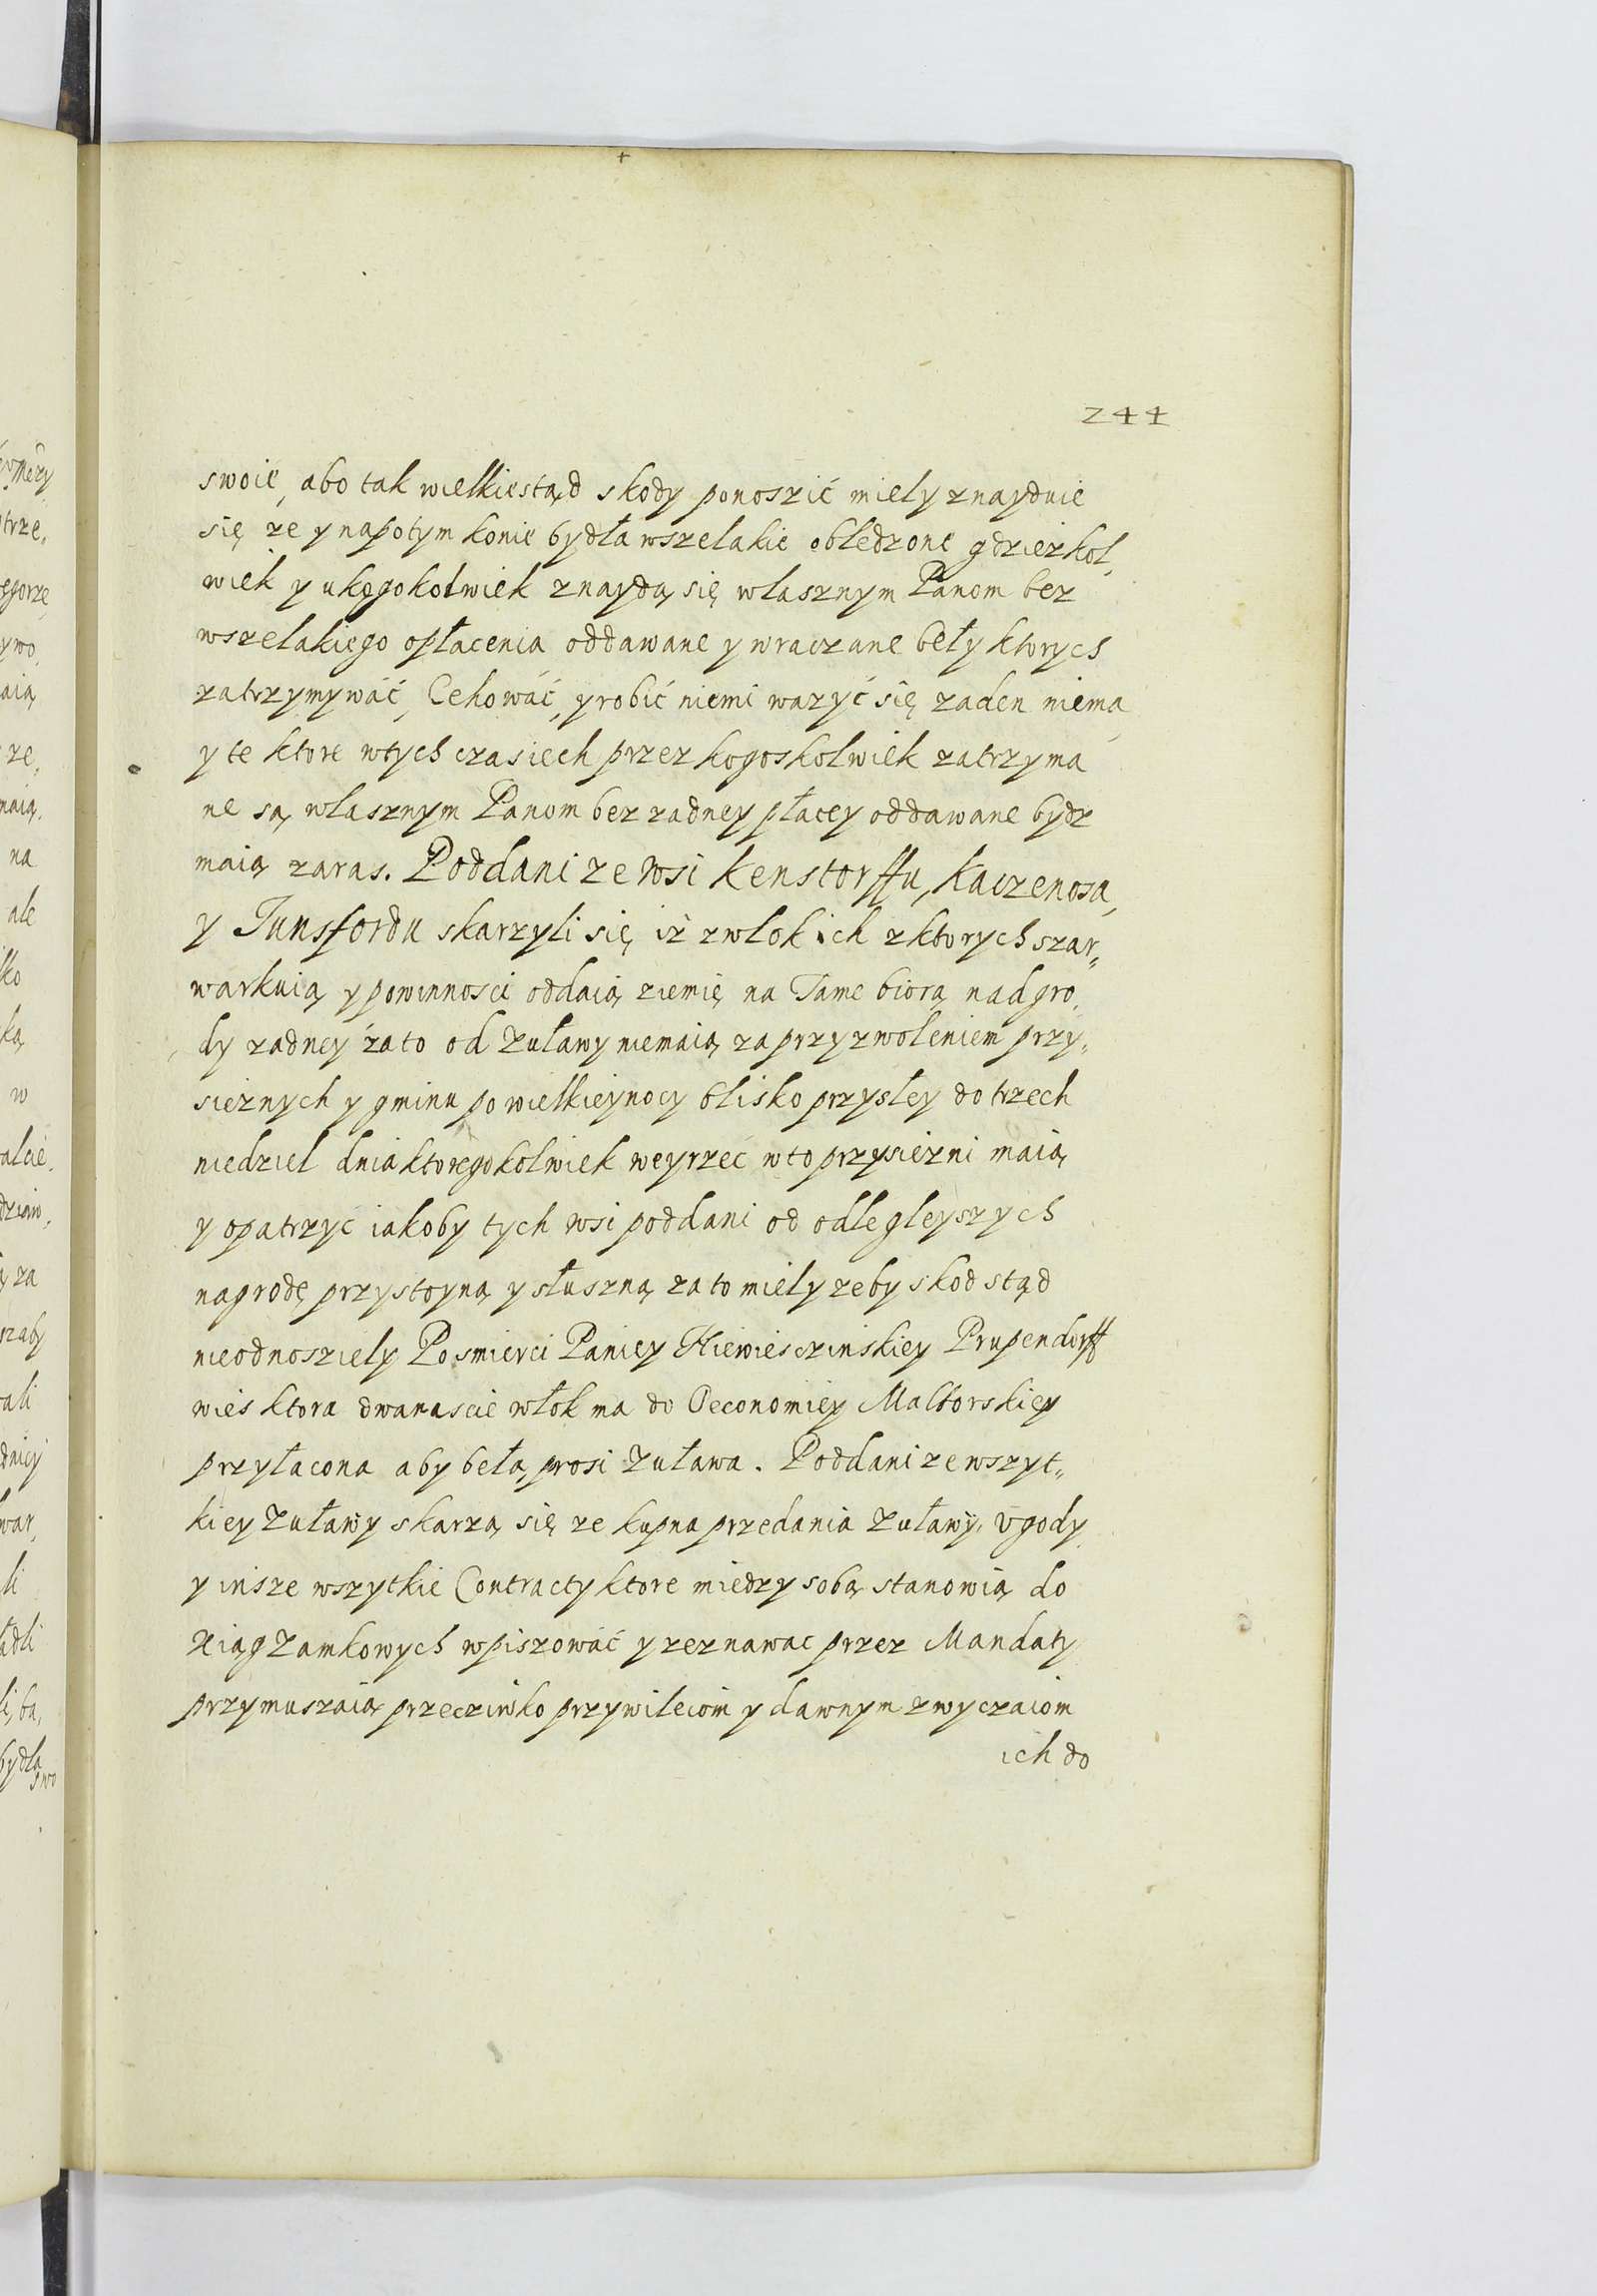 244
swoie, abo tak wielkie stąd skody ponoszić miely znayduie
się ze y napotym konie bydła wszelakie obłedzone gdzieżkol,
wiek y ukogokolwiek znaydą się własznym Panom bez
wszelakiego opłacenia oddawane y wraczane beły ktorych
zatrzymywáć, Cehowáć, y robić niemi wazyć się zaden niema
y te ktore wtych czasiech przez kogoskolwiek zatrzyma
ne są, własznym Panom bez zadney płacey oddawane bydz
maią zaras. Poddani ze wsi Kenstorffu, Kaczenosa,
y Tunsfordu skarzyli się iż zwlok ich z ktorych szar„
warkuią y powinnosci oddaią ziemię na Tame biorą nadgro,
dy zadney zato od Zuławy niemaią za przyzwoleniem przy„
siężnych y gminu po wielkieynocy blisko przysley do trzech
niedziel dnia ktoregokolwiek weyrzeć w to przysiezni maią
y opatrzyć iakoby tych wsi poddani od odlegleyszych
nagrodę przystoyną y słuszną za to miely zeby skod stąd
nieodnosziely Po smierci Paniey Niewiesczinskiey Prupendorff
wies ktora dwanascie włok ma do Oeconomiey Malborskiey
przyłacona aby beła, prosi Zuława. Poddani ze wszyt„
kiey Zuławy skarzą się ze kupna przedania Zuławy, vgody
y insze wszytkie Contracty ktore miedzy sobą stanowią do
xiąg Zamkowych wpiszowáć y zeznawac przez Mandaty
przymuszaią przecziwko przywileiom y dawnym zwyczaiom
ich do